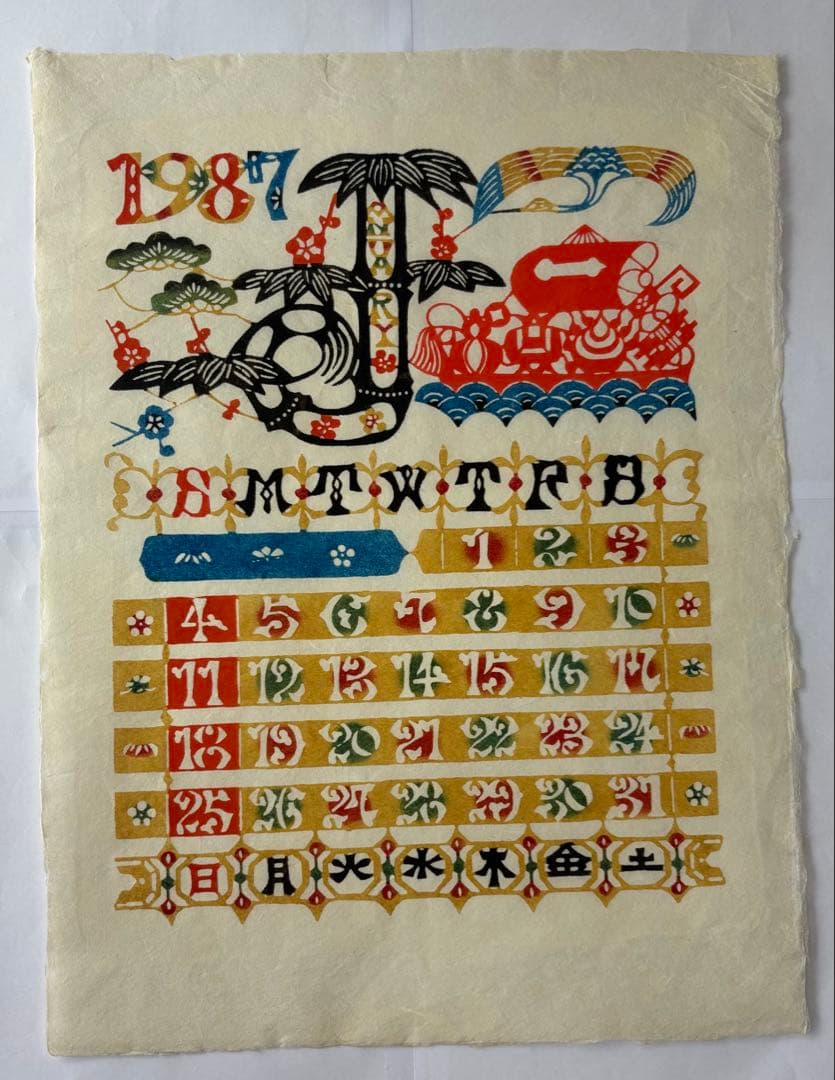 1987
JANUARY
S M T W T F S
1 2 3
4 5 6 7 8 9 10
11 12 13 14 15 16 17
18 19 20 21 22 23 24
25 26 27 28 29 30 31
日 月 火 水 木 金 土